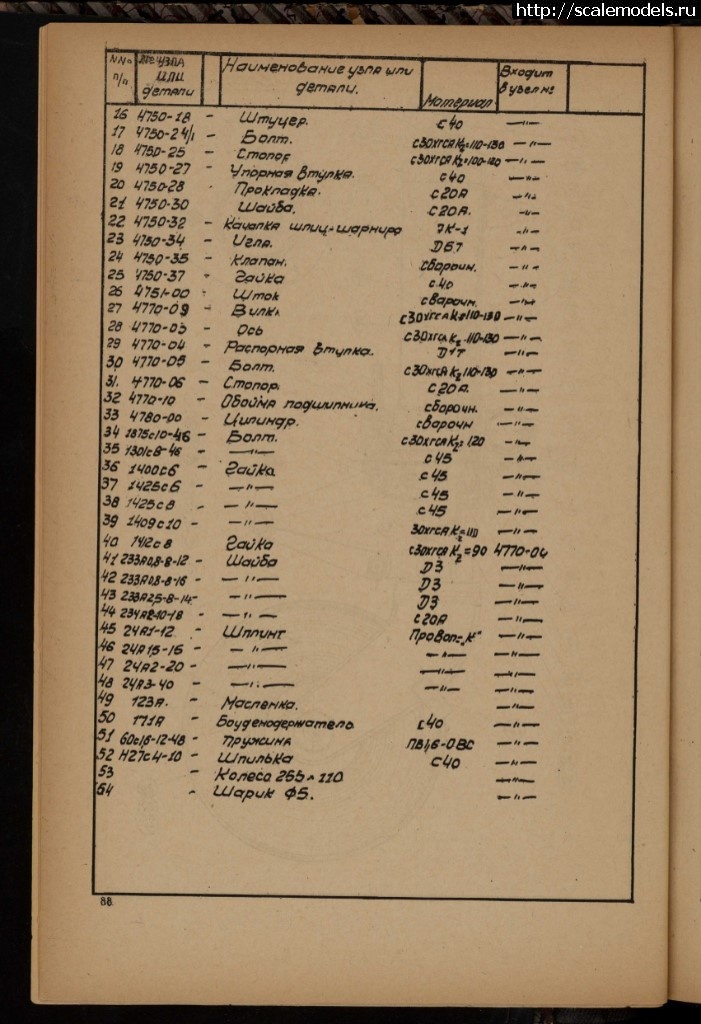 http://scalemodels.ru
NNo п/п №№ узла или детали Наименование узла или детали. Материал Входит в узел №
16 4750-18 - Штуцер. с40 —"—
17 4750-24/1 - Болт. с30хгсА К₂=110-130 —"—
18 4750-25 - Стопор с30хгсА К₂=100-120 —"—
19 4750-27 - Упорная втулка. с40 —"—
20 4750-28 - Прокладка. с20А —"—
21 4750-30 - Шайба. с20А. —"—
22 4750-32 - Качалка шлиц-шарнира ЭК-1 —"—
23 4750-34 - Игла. —"—
24 4750-35 - Клапан. сварочн. —"—
25 4750-37 - Гайка с.40 —"—
26 4751-00 - Шток сварочн. —"—
27 4770-09 - Вилка с30хгсА К₂=110-130 —"—
28 4770-03 - Ось с30хгсА К₂ 110-130 —"—
29 4770-04 - Распорная втулка. —"—
30 4770-05 - Болт. с30хгсА К₂ 110-130 —"—
31. 4770-06 - Стопор. с20А. —"—
32 4770-10 - Обойма подшипника. сборочн. —"—
33 4780-00 - Цилиндр. сварочн —"—
34 1875с10-46 - Болт. с30хгсА К₂=120 —"—
35 1301с8-46 - —"— с45 —"—
36 1400с6 - Гайка с45 —"—
37 1425с6 - —"— с45 —"—
38 1425с8 - —"— с45 —"—
39 1409с10 - —"— 30хгсА К₂=110 —"—
40 1412с8 Гайка с30хгсА К₂=90 4770-04
41 233А0,8-8-12 - Шайба D3 —"—
42 233А0,8-8-16 - —"— D3 —"—
43 233А2,5-8-14- —"— D3 —"—
44 234А2-10-18 - —"— с20А —"—
45 24А1-12 - Шплинт Провол="К" —"—
46 24А1,5-15 - —"— —"— —"—
47 24А2-20 - —"— —"— —"—
48 24А3-40 - —"— —"— —"—
49 123А. - Масленка. —"—
50 171А - Боуденодержатель с40 —"—
51 60с1,6-12-48 - Пружина ПВ1,6-ОВС —"—
52 Н27с4-10 - Шпилька С40 —"—
53 - Колесо 265×110 —"—
54 - Шарик Ф5. —"—
88.